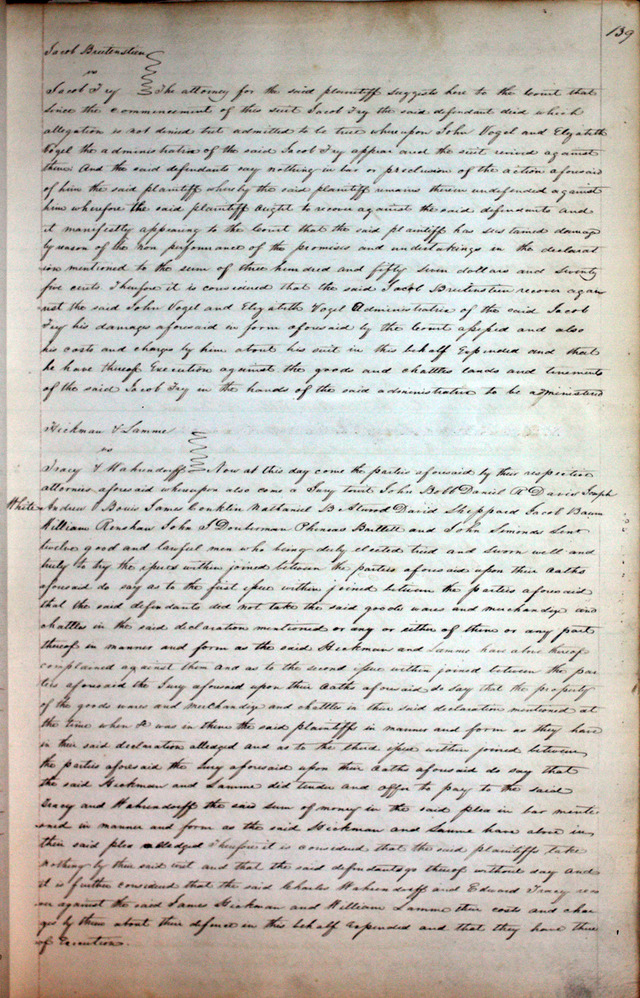 139
Jacob Breitenstein
vs
Jacob Fry The attorney for the said plaintiff suggests here to the Court that
since the commencement of this suit Jacob Fry the said defendant died which
allegation is not denied but admitted to be true whereupon John Vogel and Elizabeth
Vogel the administratrix of the said Jacob Fry appear and the suit revived against
them And the said defendants say nothing in bar or preclusion of the action aforesaid
of him the said plaintiff whereby the said plaintiff remains therein undefended against
him wherefore the said plaintiff aught to recover against the said defendants and
it manifestly appearing to the Court that the said plaintiff has sustained damage
by reason of the non performance of the promises and undertakings in the declarat
ion mentioned to the sum of three hundred and fifty seven dollars and seventy
five cents Therefore it is considered that the said Jacob Breitenstein recover again
st the said John Vogel and Elizabeth Vogel administratrix of the said Jacob
Fry his damages aforesaid in form aforesaid by the Court assessed and also
his costs and charges by him about his suit in this behalf Expended and that
he have thereof Execution against the goods and chattles lands and tenements
of the said Jacob Fry in the hands of the said administratrix to be administered
Hickman & Lamme
vs
Tracy & Wahrendorff Now at this day come the parties aforesaid by their respective
attornies aforesaid whereupon also come a Jury towit John Bobb Daniel R Davis Joseph
White Andrew Bouis James Conklin Nathaniel B Atwood David Sheppard Jacob Baum
William Renshaw John S Douberman Phineas Bartlett and John Simonds Senr
twelve good and lawful men who being duly elected tried and sworn well and
truly to try the issues within joined between the parties aforesaid upon their oaths
aforesaid do say as to the first issue within joined between the parties aforesaid
that the said defendants did not take the said goods wares and merchandize and
chattles in the said declaration mentioned or any or either of them or any part
thereof in manner and form as the said Hickman and Lamme have above thereof
complained against them And as to the second issue within joined between the par
ties aforesaid the Jury aforesaid upon their oaths aforesaid do say that the property
of the goods wares and merchandize and chattles in their said declaration mentioned at
the time when & was in them the said plaintiffs in manner and form as they have
in their said declaration alledged and as to the third issue within joined between
the parties aforesaid the Jury aforesaid upon their oaths aforesaid do say that
the said Hickman and Lamme did tender and offer to pay to the said
Tracy and Wahrendorff the said sum of money in the said plea in bar menti
oned in manner and form as the said Hickman and Lamme have above in
their said plea alledged Therefore it is considered that the said plaintiffs take
nothing by their said writ and that the said defendants go thereof without day And
it is further considered that the said Charles Wahrendorff and Edward Tracy reco
ver against the said James Hickman and William Lamme their costs and char
ges by them about their defence in this behalf expended and that they have there
of Execution.